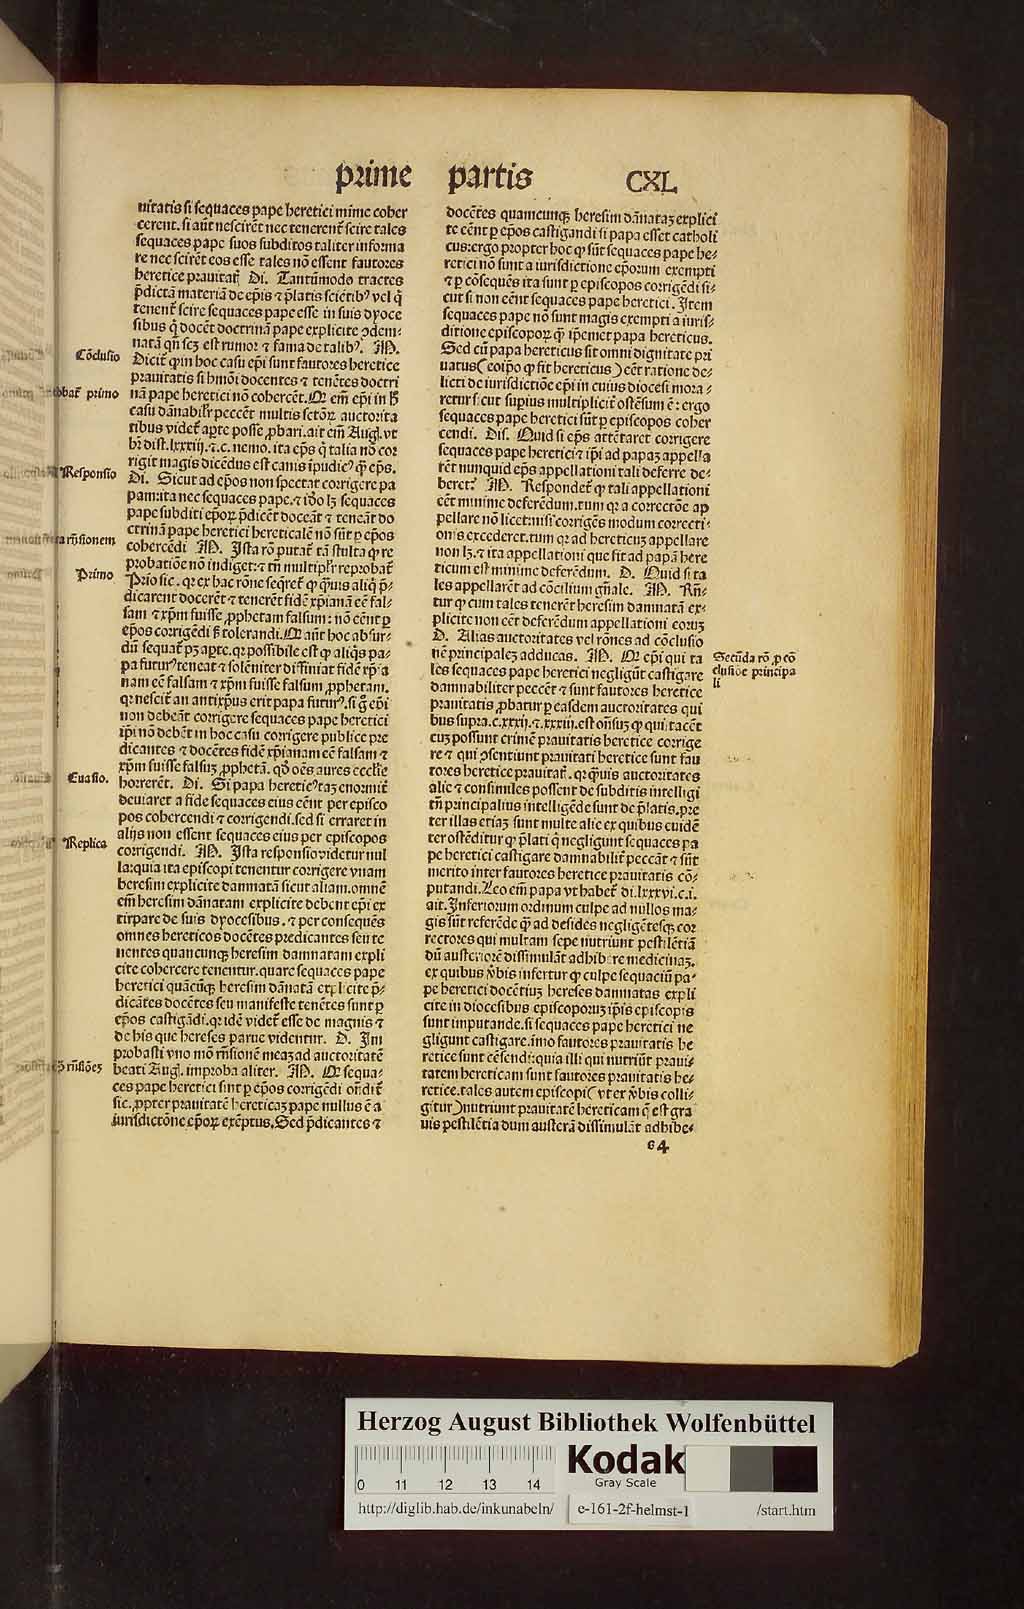 prime partis CXL
nitatis si sequaces pape heretici mĩme coher
cerent. si aũt nescirẽt nec tenerent̃ scire tales
sequaces pape suos subditos taliter informa
re nec scirẽt eos esse tales nõ essent fautores
heretice prauitat̃ Di. Tantũmodo tractes
p̃dictã materiã de ep̃is ⁊ p̃latis sciẽtibꝰ vel q̃
tenent̃ scire sequaces pape esse in suis dyoce
sibus q̃ docẽt doctrinã pape explicite ↄdem⸗
natã qñ scꝫ est rumor ⁊ fama de talibꝰ. M.
Dicit̃ ꝙ in hoc casu ep̃i sunt fautores heretice
prauitatis si hmõi docentes ⁊ tenẽtes doctri
nã pape heretici nõ cohercẽt. Qꝛ em̃ ep̃i in h̃
casu dãnabilr̃ peccẽt multis sctõꝝ auctorita
tibus videt̃ apte posse ꝓbari. ait em̃ Augꝰ. vt
hr̃ dist. lxxxiij. ⁊.c. nemo. ita ep̃s q̃ talia nõ cor
rigit magis dicẽdus est canis ĩpudicꝰ ꝙ̃ ep̃s.
Di. Sicut ad ep̃os non spectat corrigere pa
pam: ita nec sequaces pape. ⁊ iõo lꝫ sequaces
pape subditi ep̃oꝝ p̃dicẽt doceãt ⁊ teneãt do
ctrinã pape heretici hereticalẽ nõ sũt ꝑ ep̃os
cohercẽdi M. Ista rõ putat̃ tã stulta ꝙ re
probatiõe nõ indiget: ⁊ tñ multiplr̃ reprobat̃
Prio sic. qꝛ ex hac rõne seq̃ret̃ ꝙ q̃uis aliq̃ p̃⸗
dicarent docerẽt ⁊ tenerẽt fidẽ xp̃ianã eẽ fal⸗
sam ⁊ xp̃m fuisse ꝓphetam falsum: nõ cẽnt ꝑ
ep̃os corrigẽdi ß tolerandi. Qꝛ aũt hoc absur⸗
dũ sequat̃ pꝫ apte. qꝛ possibile est ꝙ aliq̃s pa⸗
pa futurꝰ teneat ⁊ solẽniter diffiniat fidẽ xp̃ia
nam eẽ falsam ⁊ xp̃m fuisse falsum ꝓphetam.
qꝛ nescit̃ an antixp̃us erit papa futurꝰ. si g̃ ep̃i
non debeãt corrigere sequaces pape heretici
ip̃i nõ debẽt in hoc casu corrigere publice pre
dicantes ⁊ docẽtes fidẽ xp̃ianam eẽ falsam ⁊
xp̃m fuisse falsuꝫ ꝓphetã. qd̃ oẽs aures eccl̃ie
horrerẽt. Di. Si papa hereticꝰ taꝫ enormit̃
deuiaret a fide sequaces eius cẽnt per episco
pos cohercendi ⁊ corrigendi. sed si erraret in
alijs non essent sequaces eius per episcopos
corrigendi. M. Ista responsio videtur nul
la: quia ita episcopi tenentur corrigere vnam
heresim explicite damnatã sicut aliam. omnẽ
em̃ heresim dãnatam explicite debent ep̃i ex
tirpare de suis dyocesibus. ⁊ per consequẽs
omnes hereticos docẽtes predicantes seu te
nentes quancunqꝫ heresim damnatam expli
cite cohercere tenentur. quare sequaces pape
heretici quãcũqꝫ heresim dãnatã explicite p̃⸗
dicãtes docẽtes seu manifeste tenẽtes sunt ꝑ
ep̃os castigãdi. qꝛ idẽ videt̃ esse de magnis ⁊
de his que hereses parue videntur. D. Im
probasti vno mõ rñsionẽ meaꝫ ad auctoritatẽ
beati Augꝰ. improba aliter. M. Qꝛ sequa⸗
ces pape heretici sint ꝑ ep̃os corrigẽdi oñdit̃
sic. ꝓpter prauitatẽ hereticaꝫ pape nullus ẽ a
iurisdictõne ep̃oꝝ exẽptus. Sed p̃dicantes ⁊
Cõclusio
obbat̃ primo
Responsio
a rñsionem
Primo
Euasio.
Replica
rñsiõeꝫ
docẽtes quamcunqꝫ heresim dãnataꝫ explici
te cẽnt ꝑ ep̃os castigandi si papa esset catholi
cus: ergo propter hoc ꝙ sũt sequaces pape he⸗
retici nõ sunt a iurisdictione ep̃orum exempti
⁊ ꝑ cõsequẽs ita sunt ꝑ episcopos corrigẽdi si⸗
cut si non eẽnt sequaces pape heretici. Item
sequaces pape nõ sunt magis exempti a iuris⸗
ditione episcopoꝝ ꝙ̃ ip̃emet papa hereticus.
Sed cũ papa hereticus sit omni dignitate pri
uatus (eoip̃o ꝙ fit hereticus) eẽt ratione de⸗
licti de iurisdictiõe ep̃i in cuius diocesi mora⸗
retur sicut supius multiplicit̃ ostẽsum ẽ: ergo
sequaces pape heretici sũt ꝑ episcopos coher
cendi. Dis. Quid si ep̃s attẽtaret corrigere
sequaces pape heretici ⁊ ip̃i ad papaꝫ appella
rẽt nunquid ep̃s appellationi tali deferre de⸗
beret? M. Respondet̃ ꝙ tali appellationi
eẽt minime deferẽdum. tum qꝛ a correctõe ap
pellare nõ licet: nisi corrigẽs modum correcti⸗
onis excederet. tum qꝛ ad hereticuꝫ appellare
non lꝫ. ⁊ ita appellationi que fit ad papã here
ticum est minime deferẽdum. D. Quid si ta
les appellarẽt ad cõcilium gñale. M. Rñ⸗
tur ꝙ cum tales tenerẽt heresim damnatã ex⸗
plicite non eẽt deferẽdum appellationi eoruꝫ
D. Alias auctoritates vel rõnes ad cõclusio
nẽ principaleꝫ adducas. M. Qꝛ ep̃i qui ta
les sequaces pape heretici negligũt castigare
damnabiliter peccẽt ⁊ sunt fautores heretice
prauitatis ꝓbatur ꝑ easdem auctoritates qui
bus supra. c. xxxij. ⁊. xxxiij. est oñsuꝫ ꝙ qui tacẽt
cuꝫ possunt crimẽ prauitatis heretice corrige
re ⁊ qui ↄsentiunt prauitati heretice sunt fau
tores heretice prauitat̃. qꝛ q̃uis auctoritates
alie ⁊ consimiles possent de subditis intelligi
tñ principalius intelligẽde sunt de p̃latis. pre
ter illas etiaꝫ sunt multe alie ex quibus euidẽ
ter ostẽditur ꝙ p̃lati q̃ negligunt sequaces pa
pe heretici castigare damnabilit̃ peccãt ⁊ sũt
merito inter fautores heretice prauitatis cõ⸗
putandi. Leo em̃ papa vt habet̃ di. lxxxvi. c. i.
ait. Inferiorum ordinum culpe ad nullos ma⸗
gis sũt referẽde ꝙ̃ ad desides negligẽtesqꝫ cor
rectores qui multam sepe nutriunt pestilẽtiã
dũ austeriorẽ dissimulãt adhibere medicinaꝫ.
ex quibus v̾bis infertur ꝙ culpe sequaciũ pa⸗
pe heretici docẽtiuꝫ hereses damnatas expli
cite in diocesibus episcoporuꝫ ip̃is episcopis
sunt imputande. si sequaces pape heretici ne
gligunt castigare. imo fautores prauitatis he
retice sunt cẽsendi: quia illi qui nutriũt praui⸗
tatem hereticam sunt fautores prauitatis he⸗
retice. tales autem episcopi (vt ex v̾bis colli⸗
gitur) nutriunt prauitatẽ hereticam q̃ est gra
uis pestilẽtia dum austerã dissimulãt adhibe⸗
Secũda rõ ꝓ cõ
clusiõe principa
li
e4
Herzog August Bibliothek Wolfenbüttel
0 11 12 13 14
Kodak
Gray Scale
http://diglib.hab.de/inkunabeln/ e-161-2f-helmst-1 /start.htm